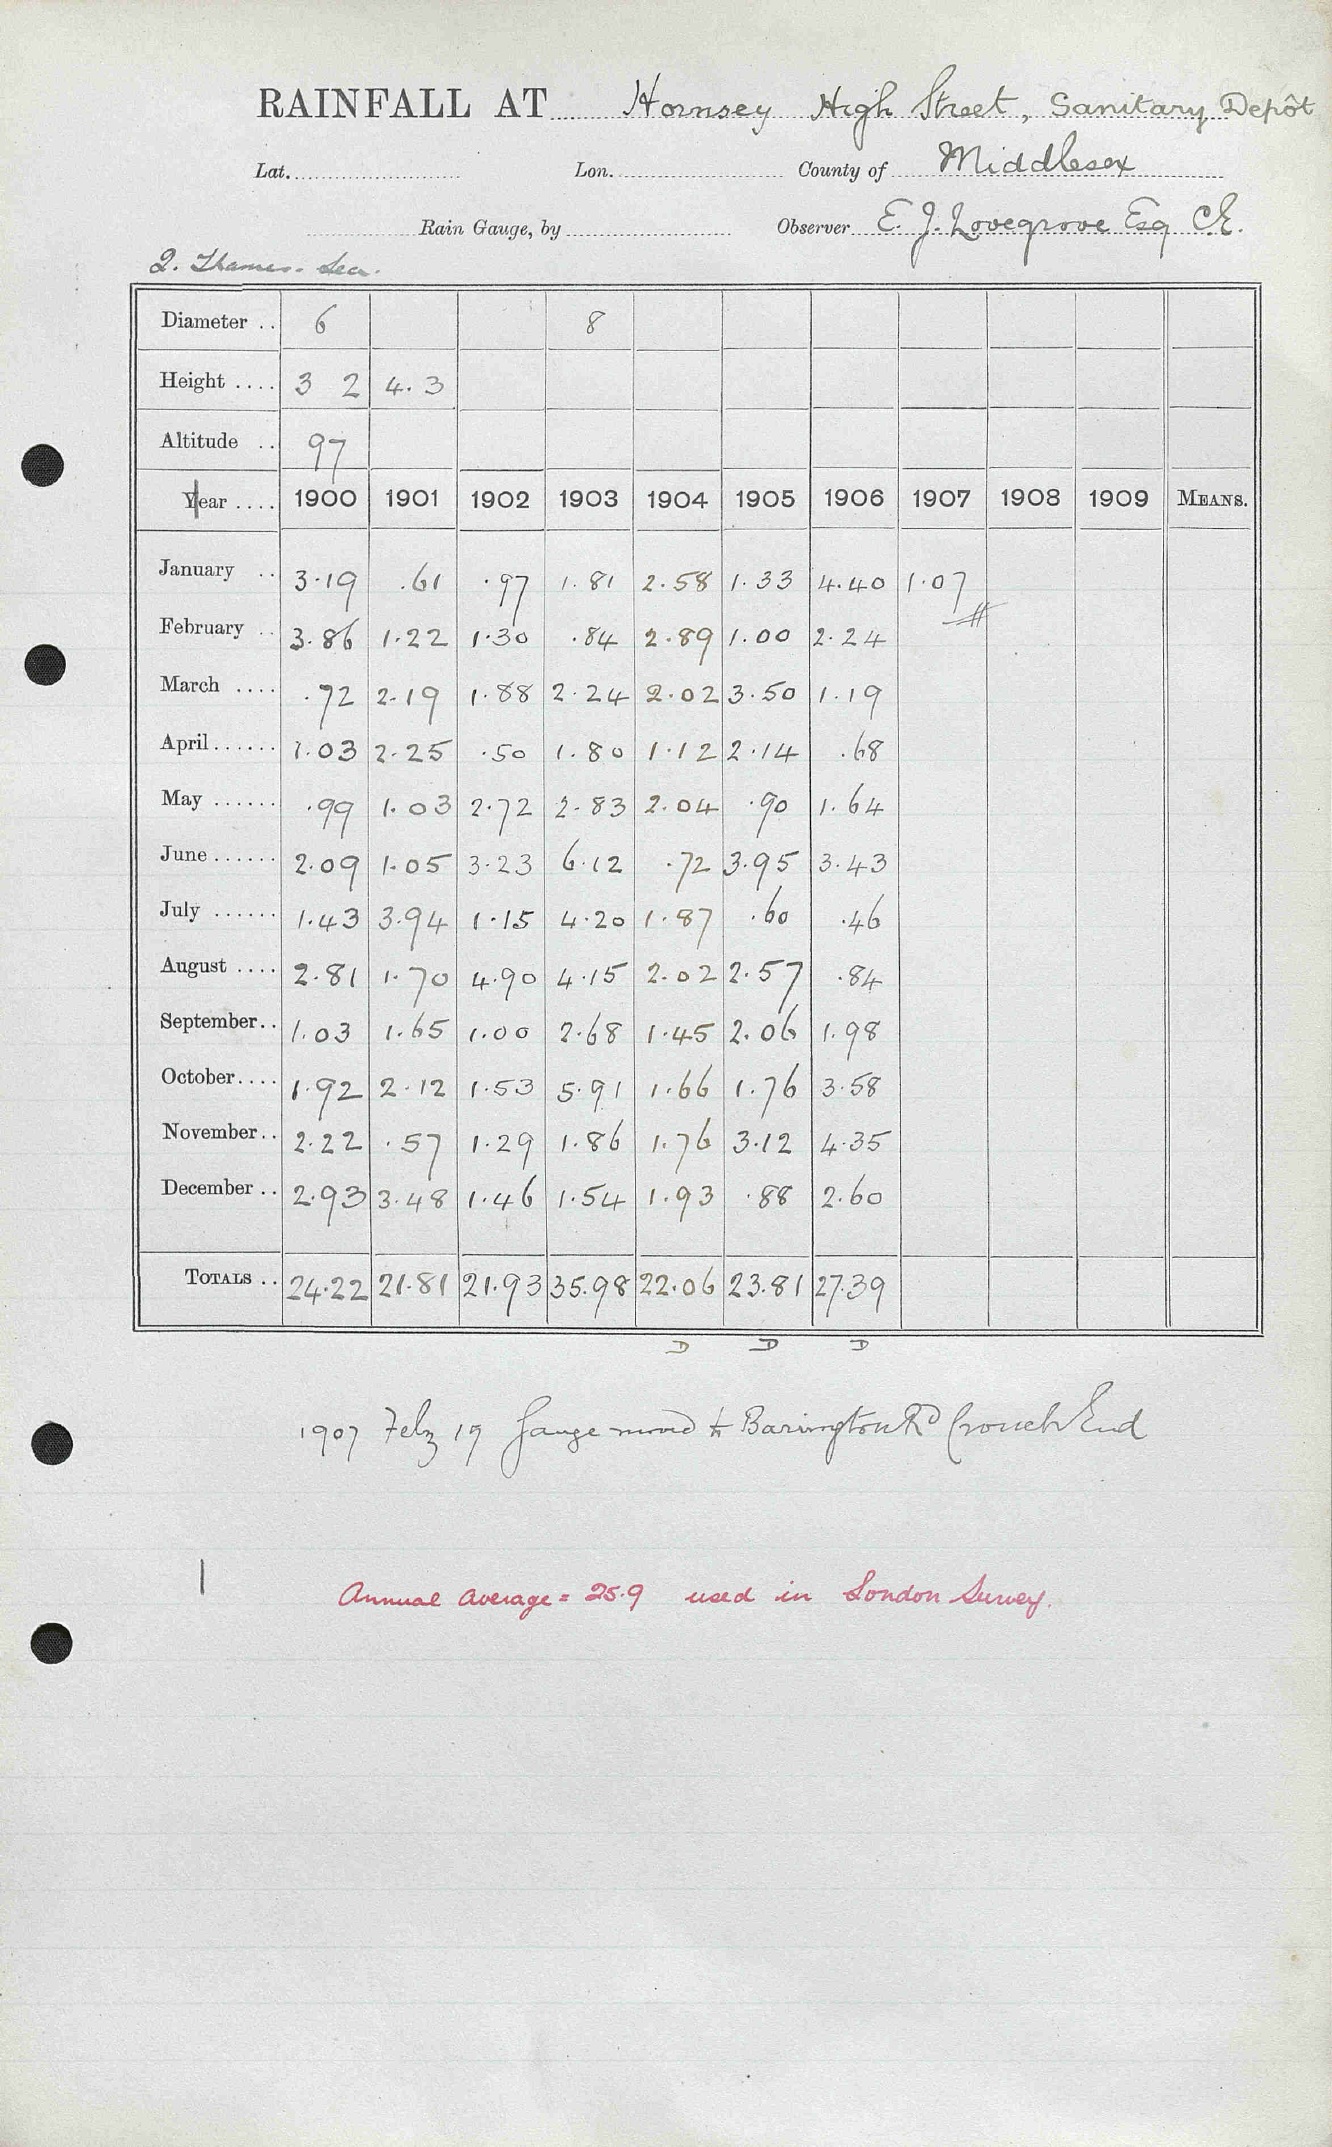 RAINFALL AT Hornsey High Street, Sanitary Depôt
Lat. Lon. County of Middlesex
Rain Gauge, by Observer E. J. Lovegrove Esq C.E.
2. Thames. Lea.
Diameter .. 6 8
Height .... 3 2 4. 3
Altitude .. 97
Year .... 1900 1901 1902 1903 1904 1905 1906 1907 1908 1909 MEANS.
January .. 3.19 .61 .97 1.81 2.58 1.33 4.40 1.07
February .. 3.86 1.22 1.30 .84 2.89 1.00 2.24
March .... .72 2.19 1.88 2.24 2.02 3.50 1.19
April ...... 1.03 2.25 .50 1.80 1.12 2.14 .68
May ...... .99 1.03 2.72 2.83 2.04 .90 1.64
June ...... 2.09 1.05 3.23 6.12 .72 3.95 3.43
July ...... 1.43 3.94 1.15 4.20 1.87 .60 .46
August .... 2.81 1.70 4.90 4.15 2.02 2.57 .84
September .. 1.03 1.65 1.00 2.68 1.45 2.06 1.98
October .... 1.92 2.12 1.53 5.91 1.66 1.76 3.58
November .. 2.22 .57 1.29 1.86 1.76 3.12 4.35
December .. 2.93 3.48 1.46 1.54 1.93 .88 2.60
TOTALS .. 24.22 21.81 21.93 35.98 22.06 23.81 27.39
D D D
1907 Feby 19 Gauge moved to Barington Rd Crouch End
Annual average = 25.9 used in London Survey.